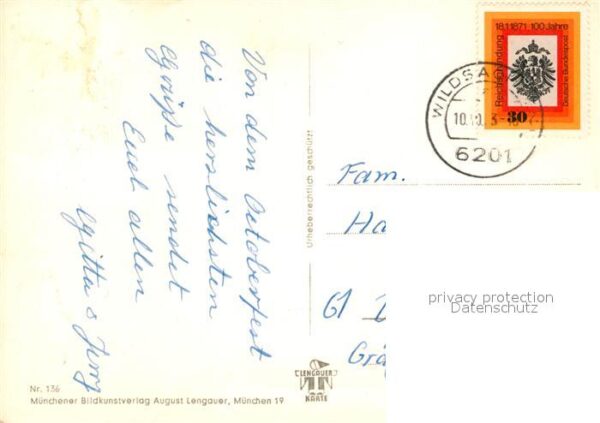 Von dem Octoberfest
die herzlichsten
Grüße sendet
Euch allen
Gitta & Jerry
Nr. 136
Münchener Bildkunstverlag August Lengauer, München 19
Urheberrechtlich geschützt
LENGAUER
KARTE
18.1.1871, 100 Jahre
Reichsgründung
Deutsche Bundespost
30
WILDSA
10.10.
6201
Fam.
Ha
61
Grä
privacy protection
Datenschutz